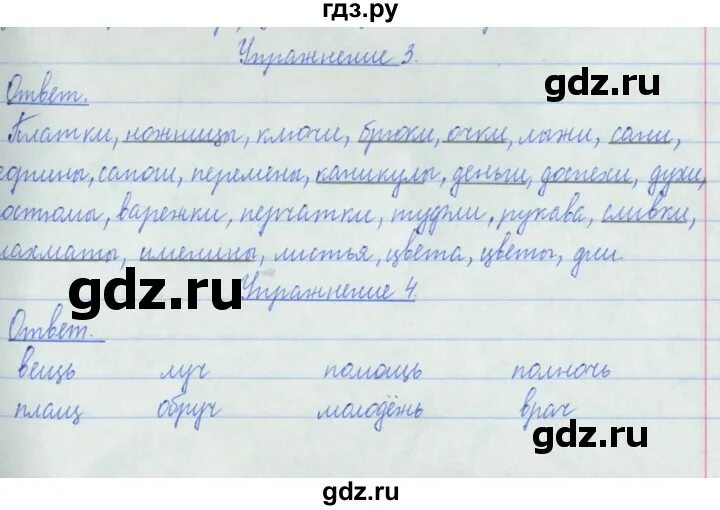 гдз.ру
Упражнение 3.
gdz.ru
Ответ.
Платки, ножницы, ключи, брюки, очки, лыжи, сани,
сапоги, перемены, каникулы, деньги, доспехи, духи,
варежки, перчатки, туфли, рукава, сливки,
именины, листья, цвета, цветы, дни
gdz.ru
Упражнение 4.
Ответ.
вещь луч помощь полночь
плащ обруч молодёжь врач
gdz.ru
gdz.ru